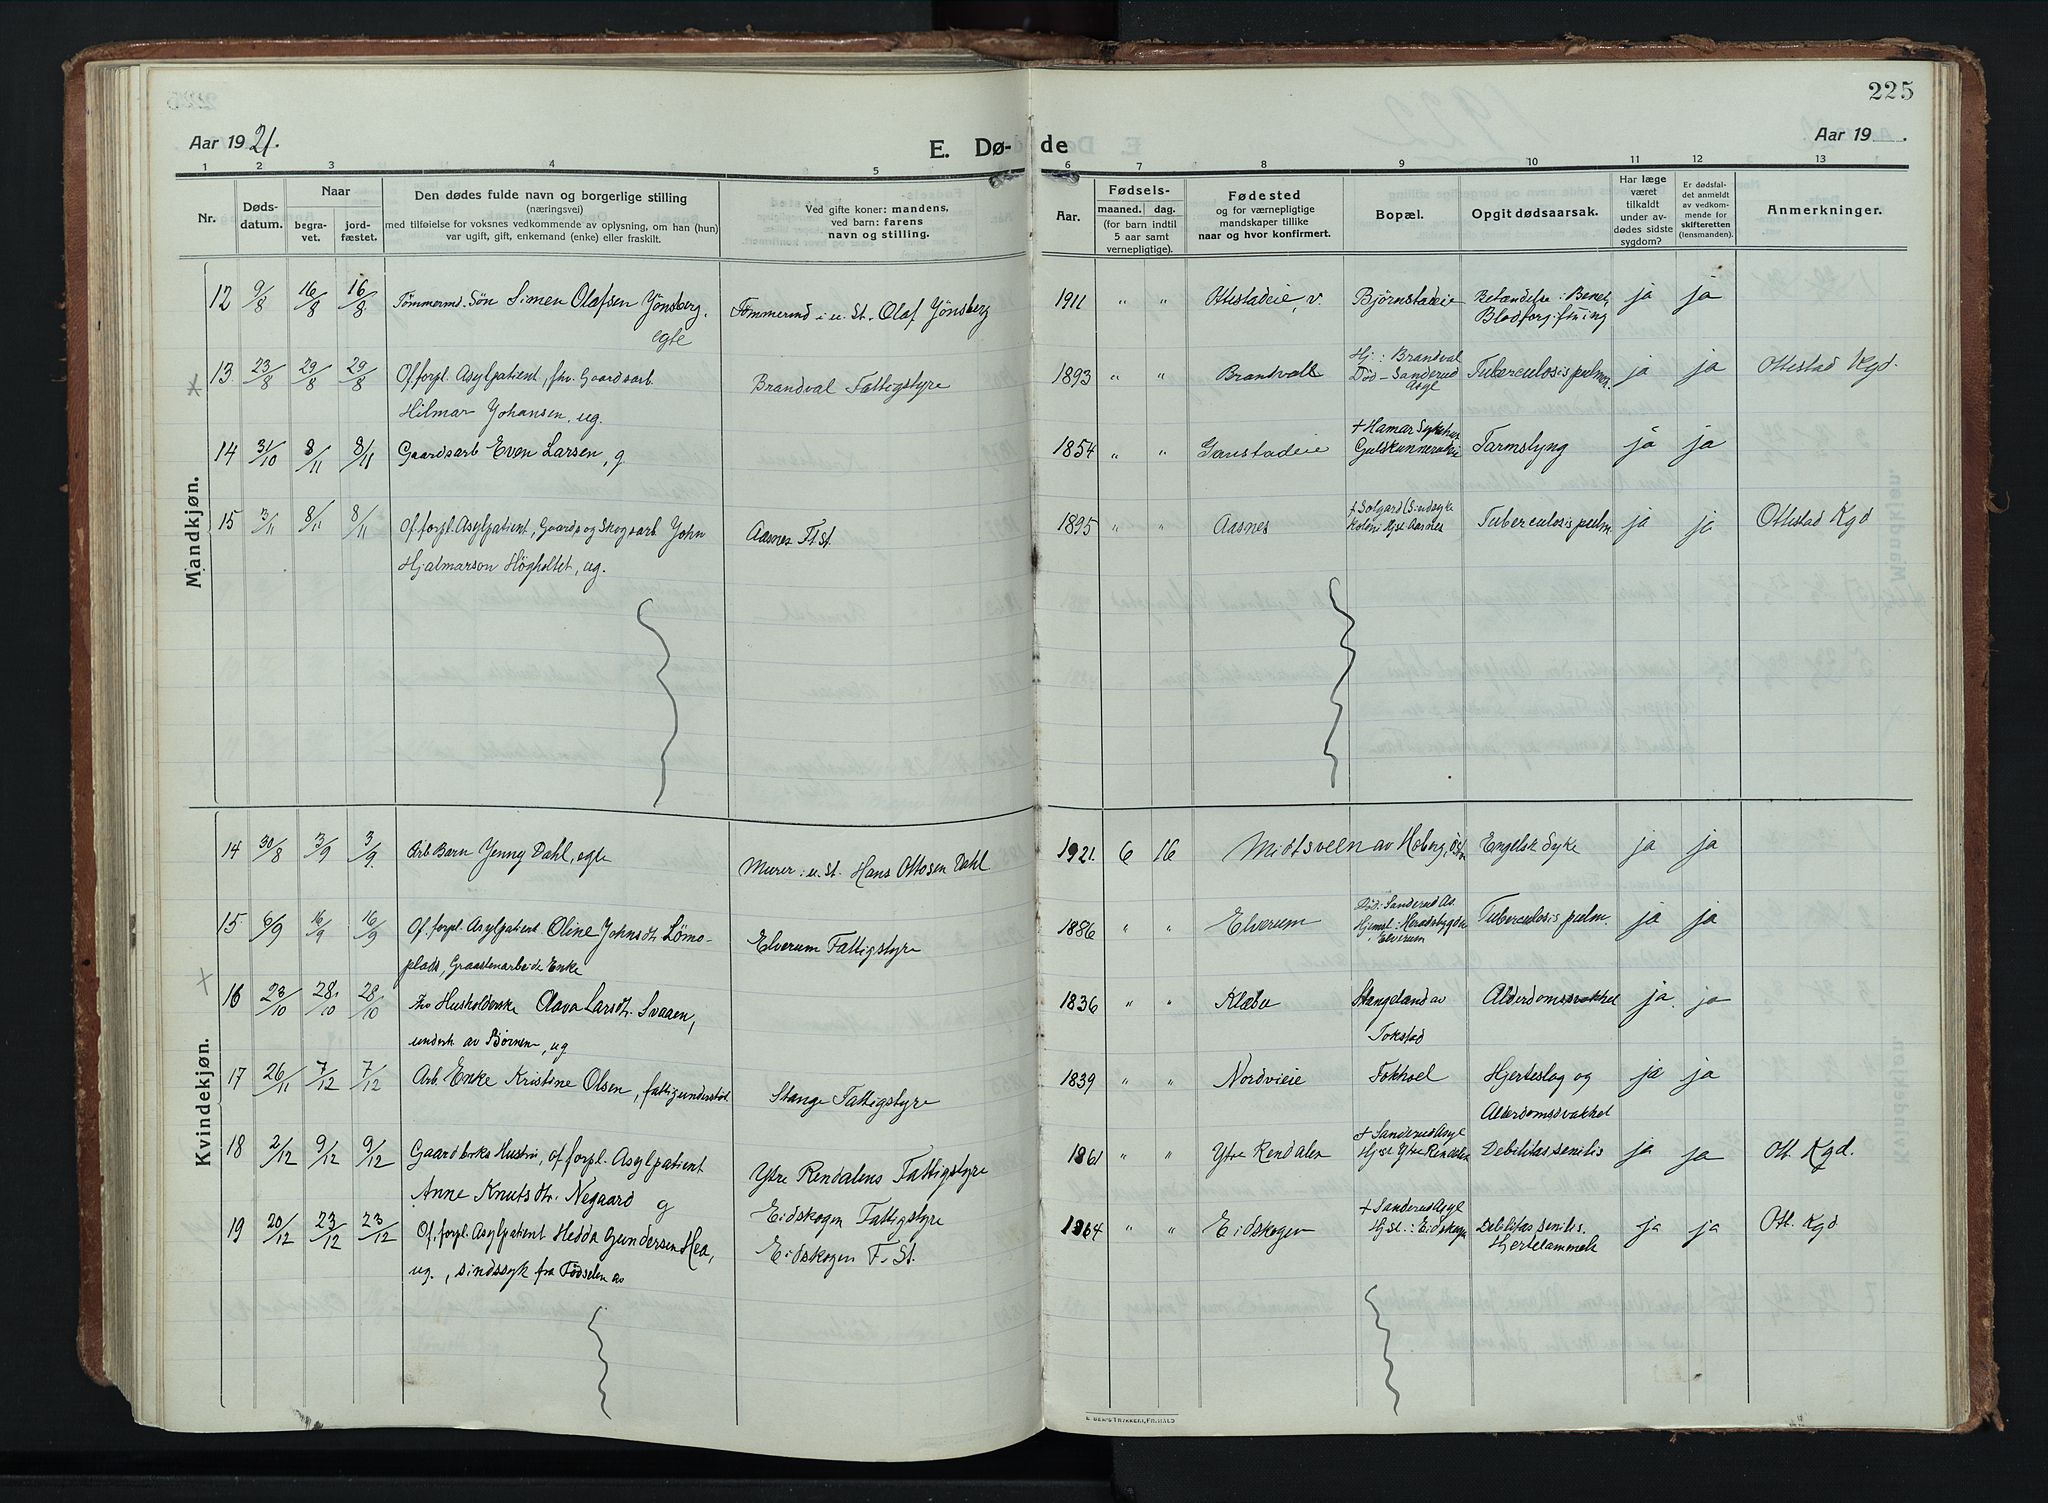 225
Aar 1921.
E. Dø-
de
Aar 19 .
1 2 3 4 5 6 7 8 9 10 11 12 13
Nr.
Døds-
datum.
Naar
begra-
vet.
jord-
fæstet.
Den dødes fulde navn og borgerlige stilling
(næringsvei)
med tilføielse for voksnes vedkommende av oplysning, om han (hun)
var ugift, gift, enkemand (enke) eller fraskilt.
Ved gifte koner: mandens,
ved barn: farens
navn og stilling.
Aar.
Fødsels-
maaned. dag.
(for barn indtil
5 aar samt
vernepligtige).
Fødested
og for værnepligtige
mandskaper tillike
naar og hvor konfirmert.
Bopæl.
Opgit dødsaarsak.
Har læge
været
tilkaldt
under av-
dødes sidste
sygdom?
Er dødsfal-
det anmeldt
av vedkom-
mende for
skifteretten
(lensmanden).
Anmerkninger.
Mandkjøn.
12 9/8 16/8 16/8 Tømmermd. Søn Simen Olafsen Jønsberg, Tømmermd i u. St. Olaf Jønsberg 1911 " " Ottestadeie, v. Bjørnstadeie Betændelse i Benet, ja ja
egte Blodforgiftning
13 23/8 29/8 29/8 Of. forpl. Asylpatient, fhv. Gaardsarb. Brandval Fattigstyre 1893 " " Brandvall Hj: Brandval
Død - Sanderud
Asyl Tuberculosis pulmon. ja ja Ottestad Kgd.
Hilmar Johansen, ug.
14 31/10 8/11 8/11 Gaardsarb Even Larsen, g 1854 " " Gaustadeie + Hamar Sykehus
Tarmslyng ja ja
15 3/11 8/11 8/11 Of. forpl. Asylpatient, Gaards og Skogsarb. John Aasnes F. St. 1895 " " Aasnes + Solgard (Sindsyke
koloni Hjst Aasnes Tuberculosis pulm. ja ja Ottestad Kgd
Hjalmarson Høgholtet, ug.
Kvindekjøn.
14 30/8 3/9 3/9. Arb Barn Jenny Dahl, egte Murer i u. St. Hans Ottosen Dahl 1921. 6 16 Midtsveen av Hoberg, Engelsk Syke ja ja
15 6/9 16/9 16/9 Of. forpl. Asylpatient Oline Johnsdt. Lømo- Elverum Fattigstyre 1886 " " Elverum Død: Sanderud As.
Hjemst: Heradsbygden
Elverum Tuberculosis pulm. ja ja
plads, Graastenarbeide Enke
16 23/10 28/10 28/10 fhv Husholderske Olava Larsdt. Svaaen, 1836 " " Klæbu Stangeland av Alderdomssvakhet ja. ja
underh. av Børnene, ug Tokstad
17 26/11 7/12 7/12 Arb. Enke Kristine Olsen, fattigunderstøt Stange Fattigstyre 1839 " " Nordvieie Tokhoel Hjerteslag og ja ja
Alderdomsvakhet
18 2/12 9/12 9/12 Gaardbrks Hustru, of. forpl. Asylpatient Ytre Rendalens Fattigstyre 1861 " " Ytre Rendalen + Sanderud Asyl
Hjst Ytre Rendalen Debilitas senilis ja ja Ott. Kgd.
Anne Knutsdtr. Negaard g
19 20/12 23/12 23/12 Of. forpl. Asylpatient Hedda Gundersen Hea, Eidskogen Fattigstyre 1864 " " Eidskogen + Sanderud Asyl
Hjst.: Eidskogen Debilitas senilis. ja ja Ott. Kgd
ug., sindssyk fra Fødselen av Eidskogen F. St. Hjertelammelse
E. BERGS TRYKKERI, FR.HALD